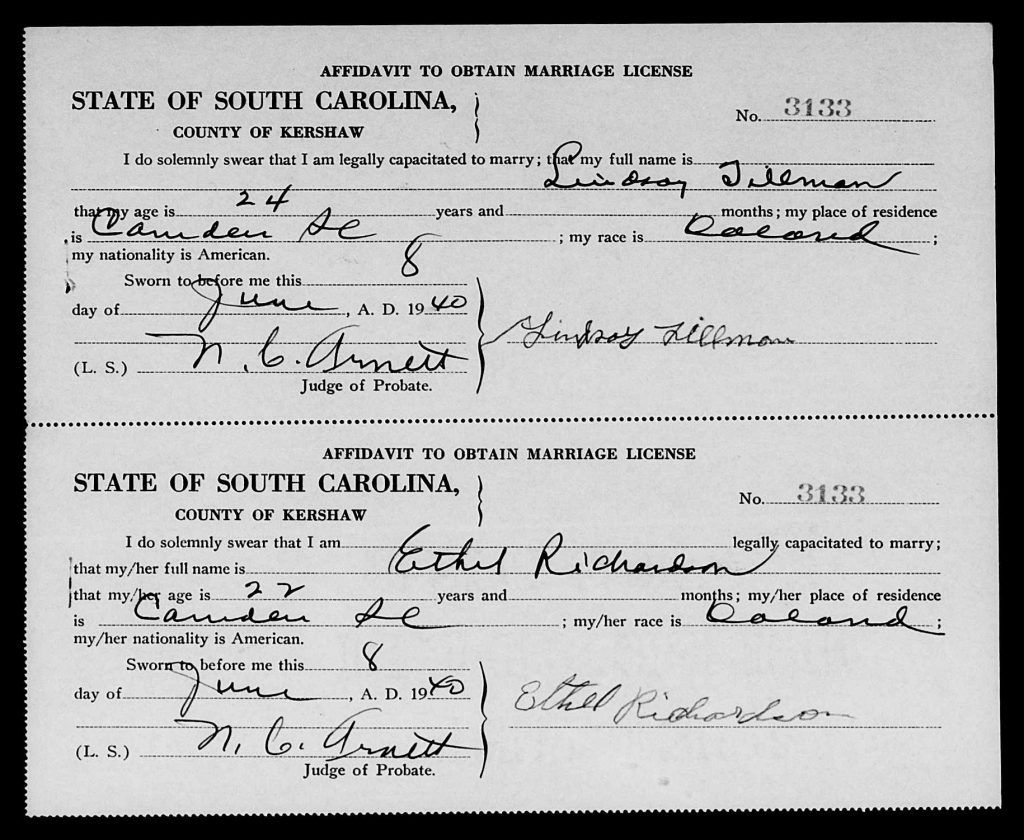 AFFIDAVIT TO OBTAIN MARRIAGE LICENSE
STATE OF SOUTH CAROLINA,
No. 3133
COUNTY OF KERSHAW
I do solemnly swear that I am legally capacitated to marry; that my full name is
Lindsay Tillman
that my age is 24 years and months; my place of residence
is Camden SC ; my race is Colored ;
my nationality is American.
Sworn to before me this 8
day of June, A. D. 1940
Lindsay Tillman
(L. S.) N. C. Arnett
Judge of Probate.
AFFIDAVIT TO OBTAIN MARRIAGE LICENSE
STATE OF SOUTH CAROLINA,
No. 3133
COUNTY OF KERSHAW
I do solemnly swear that I am legally capacitated to marry;
that my/her full name is Ethel Richardson
that my/her age is 22 years and months; my/her place of residence
is Camden SC ; my/her race is Colored ;
my/her nationality is American.
Sworn to before me this 8
day of June, A. D. 1940
Ethel Richardson
(L. S.) N. C. Arnett
Judge of Probate.